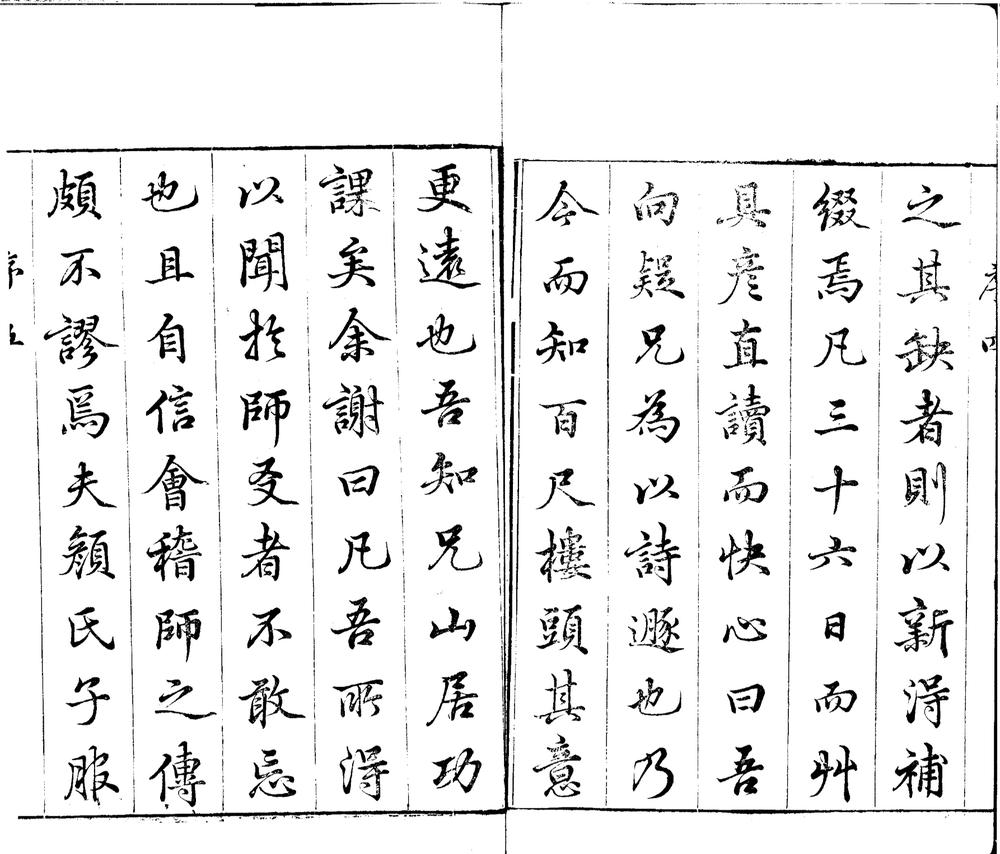 之其缺者則以新得補
綴焉凡三十六日而艸
具彥直讀而快心曰吾
向疑兄為以詩遯也乃
今而知百尺樓頭其意
更遠也吾知兄山居功
課矣余謝曰凡吾所得
以聞於師友者不敢忘
也且自信會稽師之傳
頗不謬焉夫顏氏子服